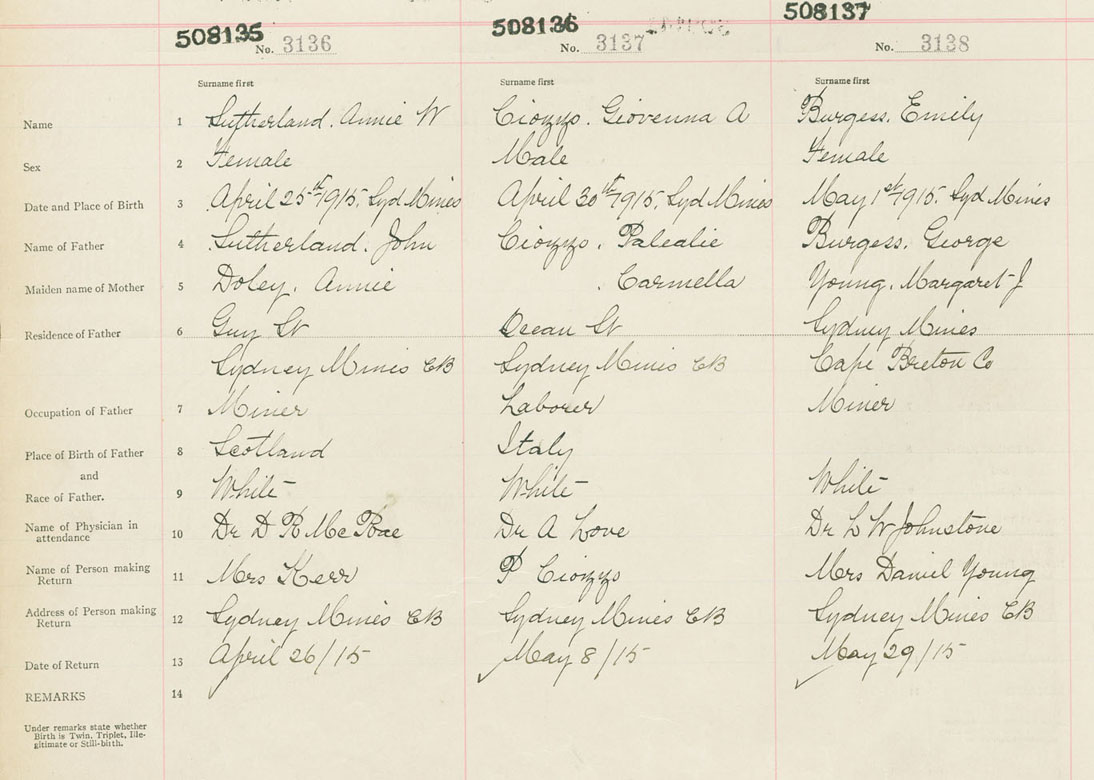 508135 508136 508137
No. 3136 No. 3137 No. 3138
Surname first Surname first Surname first
Name 1 Sutherland. Annie W Ciozzo. Giovenna A Burgess. Emily
Sex 2 Female Male Female
Date and Place of Birth 3 April 25th 1915. Syd Mines April 30th 1915. Syd Mines May 1st 1915. Syd Mines
Name of Father 4 Sutherland. John Ciozzo. Palealie Burgess. George
Maiden name of Mother 5 Doley. Annie . Carmella Young. Margaret J
Residence of Father 6 Guy St Ocean St Sydney Mines
Sydney Mines CB Sydney Mines CB Cape Breton Co
Occupation of Father 7 Miner Laborer Miner
Place of Birth of Father 8 Scotland Italy
and
Race of Father. 9 White White White
Name of Physician in
attendance 10 Dr D R McRae Dr A Love Dr L W Johnstone
Name of Person making
Return 11 Mrs Kerr P Ciozzo Mrs Daniel Young
Address of Person making
Return 12 Sydney Mines CB Sydney Mines CB Sydney Mines CB
Date of Return 13 April 26/15 May 8/15 May 29/15
REMARKS 14
Under remarks state whether
Birth is Twin, Triplet, Ille-
gitimate or Still-birth.